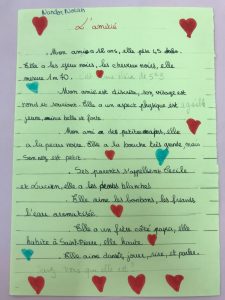 Nandor, Nolan
L'amitié
Mon amie a 12 ans, elle pèse 45 kilo.
Elle a les yeux noirs, les cheveux noirs, elle
mesure 1m 40.
Mon amie est discrète, son visage est
rond et souriant. Elle a un aspect physique est
jeune, mince belle et forte.
Mon ami a des petites mains, elle
a la peau noire. Elle a la bouche très grande mais
Son nez est petit.
Ses parents s'appellent Cécile
et Lucien, elle a les dents blanches.
Elle aime les bonbons, les
l'eau aromatisée.
Elle a un frère côté papa, elle
habite à Saint-Pierre, elle
Elle aime danser, jouer, rire, et parler.